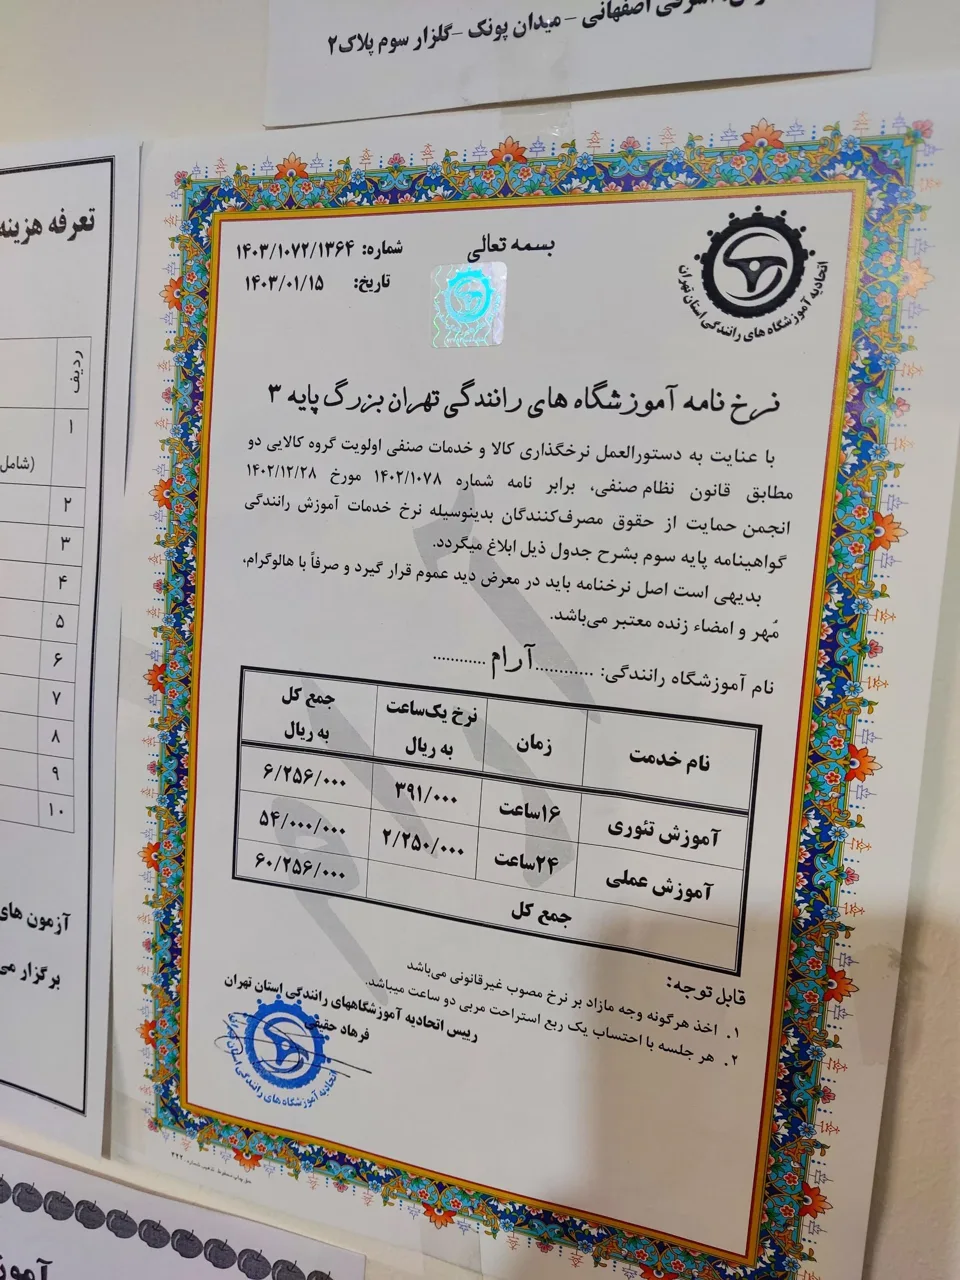 اشرفی اصفهانی – میدان پونک – گلزار سوم پلاک۲
بسمه تعالی
شماره: ۱۴۰۳/۱۰۷۲/۱۳۶۴
تاریخ: ۱۴۰۳/۰۱/۱۵
اتحادیه آموزشگاه های رانندگی استان تهران
نرخ نامه آموزشگاه های رانندگی تهران بزرگ پایه ۳
با عنایت به دستورالعمل نرخگذاری کالا و خدمات صنفی اولویت گروه کالایی دو
مطابق قانون نظام صنفی، برابر نامه شماره ۱۴۰۲/۱۰۷۸ مورخ ۱۴۰۲/۱۲/۲۸
انجمن حمایت از حقوق مصرف‌کنندگان بدینوسیله نرخ خدمات آموزش رانندگی
گواهینامه پایه سوم بشرح جدول ذیل ابلاغ میگردد.
بدیهی است اصل نرخنامه باید در معرض دید عموم قرار گیرد و صرفاً با هالوگرام،
مُهر و امضاء زنده معتبر می‌باشد.
نام آموزشگاه رانندگی: ............آرام............
نام خدمت زمان نرخ یک‌ساعت به ریال جمع کل به ریال
آموزش تئوری ۱۶ساعت ۳۹۱/۰۰۰ ۶/۲۵۶/۰۰۰
آموزش عملی ۲۴ساعت ۲/۲۵۰/۰۰۰ ۵۴/۰۰۰/۰۰۰
جمع کل ۶۰/۲۵۶/۰۰۰
آرام
قابل توجه:
۱. اخذ هرگونه وجه مازاد بر نرخ مصوب غیرقانونی می‌باشد
۲. هر جلسه با احتساب یک ربع استراحت مربی دو ساعت میباشد.
رییس اتحادیه آموزشگاههای رانندگی استان تهران
فرهاد حقیقی
اتحادیه آموزشگاه های رانندگی استان تهران
تعرفه هزینه
ردیف
۱
(شامل
۲
۳
۴
۵
۶
۷
۸
۹
۱۰
آزمون های
برگزار می